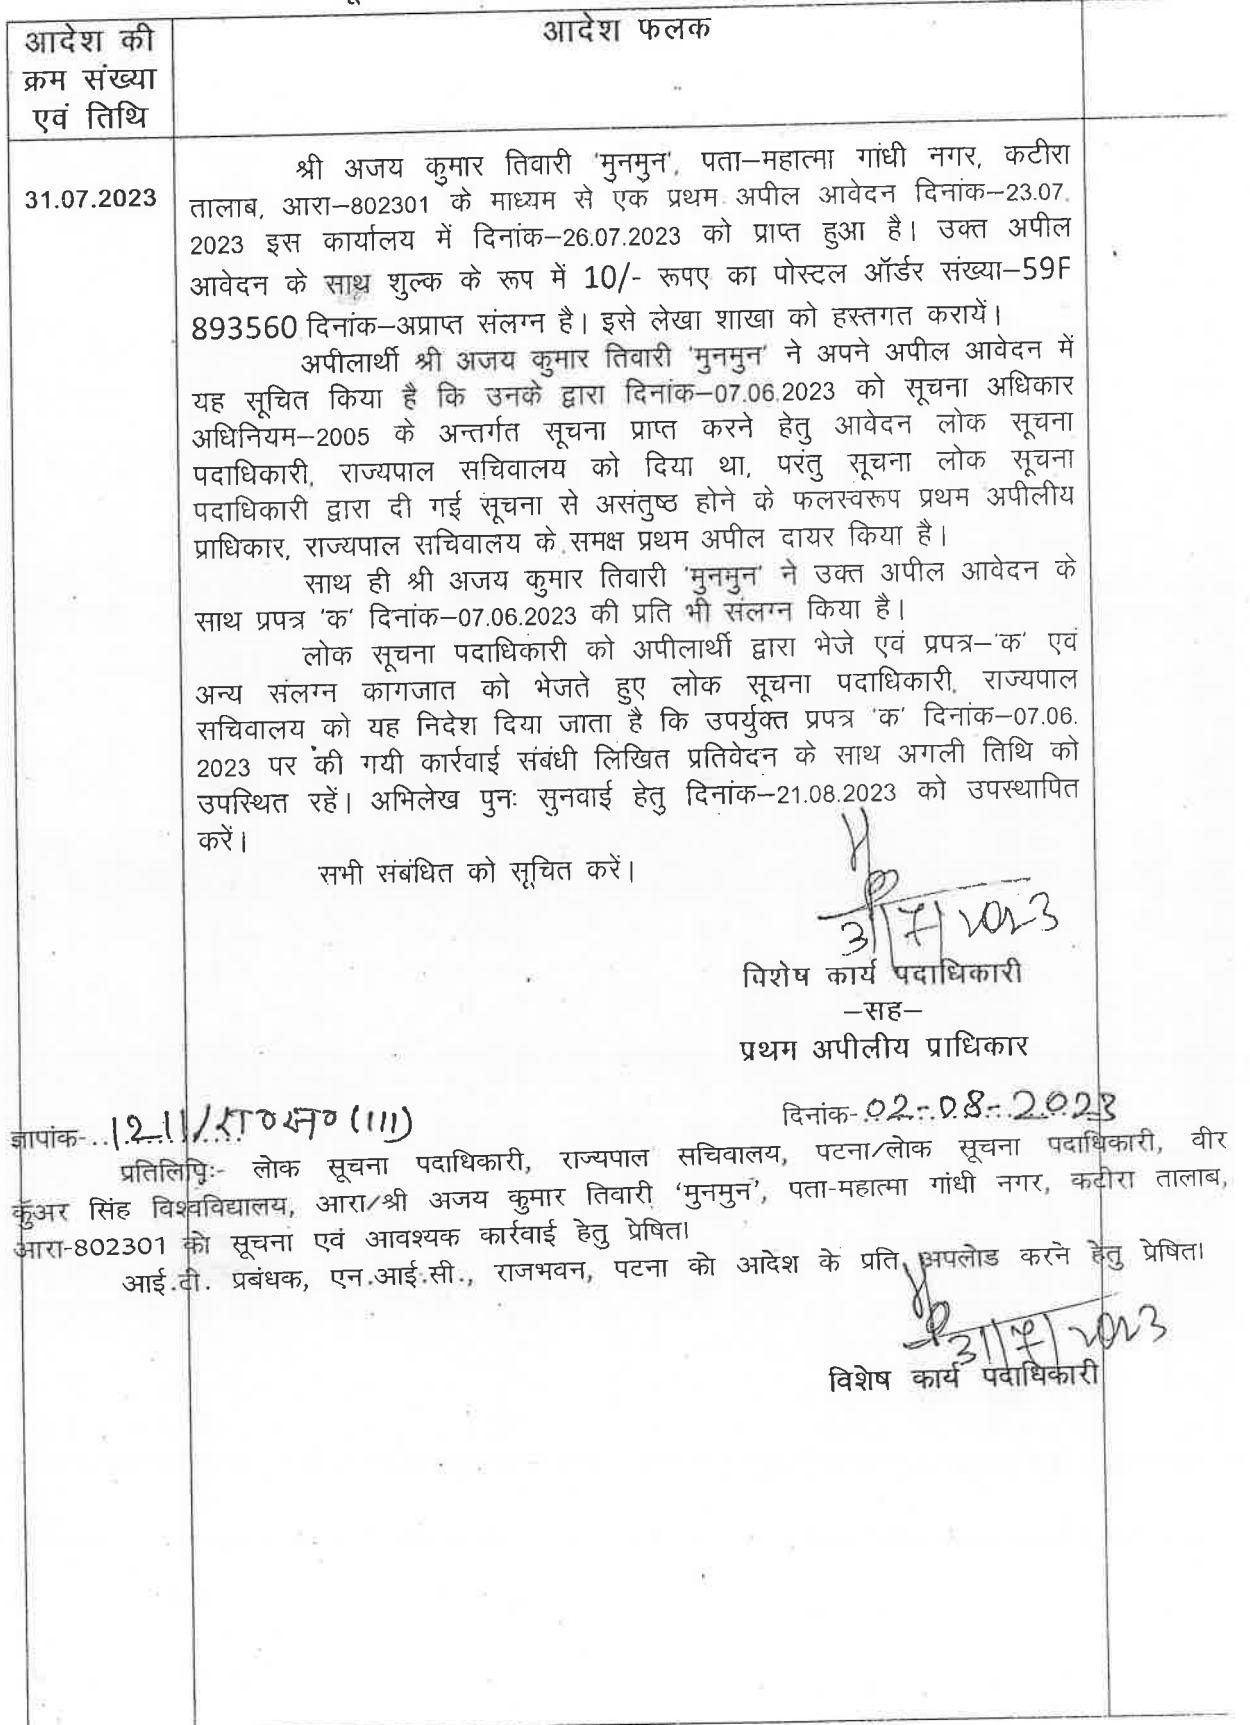 आदेश की
क्रम संख्या
एवं तिथि
आदेश फलक
31.07.2023
श्री अजय कुमार तिवारी 'मुनमुन', पता–महात्मा गांधी नगर, कटीरा
तालाब, आरा–802301 के माध्यम से एक प्रथम अपील आवेदन दिनांक–23.07.
2023 इस कार्यालय में दिनांक–26.07.2023 को प्राप्त हुआ है। उक्त अपील
आवेदन के साथ शुल्क के रूप में 10/- रूपए का पोस्टल ऑर्डर संख्या–59F
893560 दिनांक–अप्राप्त संलग्न है। इसे लेखा शाखा को हस्तगत करायें।
अपीलार्थी श्री अजय कुमार तिवारी 'मुनमुन' ने अपने अपील आवेदन में
यह सूचित किया है कि उनके द्वारा दिनांक–07.06.2023 को सूचना अधिकार
अधिनियम–2005 के अन्तर्गत सूचना प्राप्त करने हेतु आवेदन लोक सूचना
पदाधिकारी, राज्यपाल सचिवालय को दिया था, परंतु सूचना लोक सूचना
पदाधिकारी द्वारा दी गई सूचना से असंतुष्ठ होने के फलस्वरूप प्रथम अपीलीय
प्राधिकार, राज्यपाल सचिवालय के समक्ष प्रथम अपील दायर किया है।
साथ ही श्री अजय कुमार तिवारी 'मुनमुन' ने उक्त अपील आवेदन के
साथ प्रपत्र 'क' दिनांक–07.06.2023 की प्रति भी संलग्न किया है।
लोक सूचना पदाधिकारी को अपीलार्थी द्वारा भेजे एवं प्रपत्र–'क' एवं
अन्य संलग्न कागजात को भेजते हुए लोक सूचना पदाधिकारी, राज्यपाल
सचिवालय को यह निदेश दिया जाता है कि उपर्युक्त प्रपत्र 'क' दिनांक–07.06.
2023 पर की गयी कार्रवाई संबंधी लिखित प्रतिवेदन के साथ अगली तिथि को
उपस्थित रहें। अभिलेख पुनः सुनवाई हेतु दिनांक–21.08.2023 को उपस्थापित
करें।
सभी संबंधित को सूचित करें।
31/7/2023
विशेष कार्य पदाधिकारी
–सह–
प्रथम अपीलीय प्राधिकार
ज्ञापांक-..1211/रा०स०(III) दिनांक-02-08-2023
प्रतिलिपिः- लोक सूचना पदाधिकारी, राज्यपाल सचिवालय, पटना/लोक सूचना पदाधिकारी, वीर
कुँअर सिंह विश्वविद्यालय, आरा/श्री अजय कुमार तिवारी 'मुनमुन', पता-महात्मा गांधी नगर, कटीरा तालाब,
आरा-802301 को सूचना एवं आवश्यक कार्रवाई हेतु प्रेषित।
आई.टी. प्रबंधक, एन.आई.सी., राजभवन, पटना को आदेश के प्रति अपलोड करने हेतु प्रेषित।
31/7/2023
विशेष कार्य पदाधिकारी